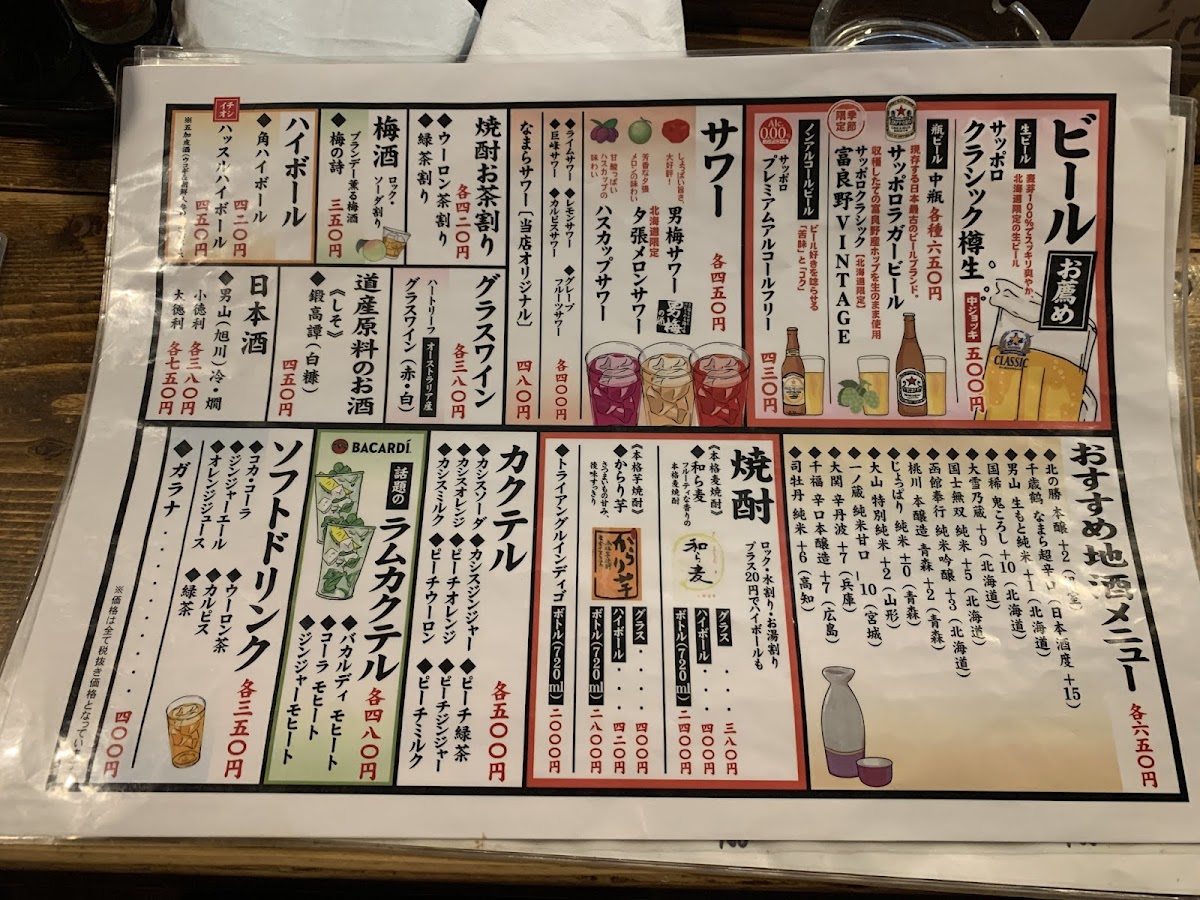 ビール
お薦め
生ビール
麦芽100%でスッキリ爽やか、
北海道限定の生ビール
サッポロ
クラシック樽生
中ジョッキ
五〇〇円
CLASSIC
瓶ビール
中瓶
各種六五〇円
現存する日本最古のビールブランド。
サッポロラガービール
季節限定
収穫したての富良野産ホップを生のまま使用
サッポロクラシック【北海道限定】
富良野VINTAGE
ノンアルコールビール
ビール好きを唸らせる
「苦味」と「コク」
Alc.
0.00%
サッポロ
プレミアムアルコールフリー
四三〇円
サワー
各四五〇円
しょっぱい旨さ、
大好評!
男梅サワー
男梅
北海道限定
芳香な夕張
メロンの味わい
夕張メロンサワー
甘酸っぱい
ハスカップの
味わい
ハスカップサワー
◆ライムサワー
◆レモンサワー
◆グレープ
フルーツサワー
◆巨峰サワー
◆カルピスサワー
各四〇〇円
なまらサワー〔当店オリジナル〕
四八〇円
焼酎お茶割り
各四二〇円
◆ウーロン茶割り
◆緑茶割り
梅酒
ロック・
ソーダ割り
ブランデー薫る梅酒
◆梅の詩
三五〇円
イチオシ
ハイボール
◆角ハイボール
四二〇円
ハッスルハイボール
四五〇円
グラスワイン
各三八〇円
ハートリーフ
オーストラリア産
グラスワイン(赤・白)
道産原料のお酒
《しそ》
◆鍛高譚(白糠)
四五〇円
日本酒
◆男山(旭川)冷・燗
小徳利
各三八〇円
大徳利
各七五〇円
おすすめ地酒メニュー
各六五〇円
◆北の勝 本醸 +2
◆千歳鶴 なまら超辛口(日本酒度 +15)
◆男山 生もと純米 +1(北海道)
◆国稀 鬼ころし +10(北海道)
◆大雪乃蔵 +9(北海道)
◆国士無双 純米 +5(北海道)
◆函館奉行 純米吟醸 +3(北海道)
◆桃川 本醸造 青森 +2(青森)
◆じょっぱり 純米 ±0(青森)
◆大山 特別純米 +2(山形)
◆一ノ蔵 純米甘口 -10(宮城)
◆大関 辛丹波 +7(兵庫)
◆千福 辛口本醸造 +7(広島)
◆司牡丹 純米 +6(高知)
焼酎
ロック・水割り・お湯割り
プラス20円でハイボールも
《本格麦焼酎》
◆和ら麦
フルーティな香りの
本格麦焼酎
和ら麦
グラス・・・・三八〇円
ハイボール・・・四〇〇円
ボトル(720ml)二四〇〇円
《本格芋焼酎》
◆からり芋
さつまいもの甘み、
後味すっきり
からり芋
グラス・・・・四〇〇円
ハイボール・・・四二〇円
ボトル(720ml)二八〇〇円
◆トライアングルインディゴ
ボトル(720ml)二〇〇〇円
カクテル
各五〇〇円
◆カシスソーダ
◆カシスジンジャー
◆ピーチ緑茶
◆カシスオレンジ
◆ピーチオレンジ
◆ピーチジンジャー
◆カシスミルク
◆ピーチウーロン
◆ピーチミルク
BACARDÍ
話題の
ラムカクテル
各四八〇円
◆バカルディ モヒート
◆コーラ モヒート
◆ジンジャーモヒート
ソフトドリンク
各三五〇円
◆コカ・コーラ
◆ウーロン茶
◆ジンジャーエール
◆カルピス
◆オレンジジュース
◆緑茶
◆ガラナ
四〇〇円